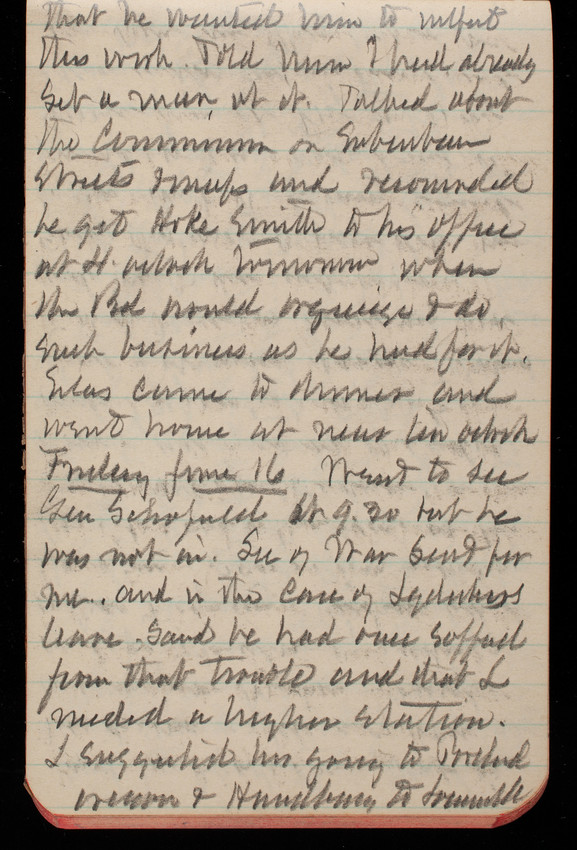 that he wanted him to inspect
this work. Told him I had already
set a man at it. Talked about
the Commission on Suburban
Streets & maps and
he get Hoke Smith to his office
at 4 oclock tomorrow when
the Bd would organize & do
such business as he had for it.
came to dinner and
went home at near ten oclock
Friday June 16 Went to see
Gen Schofield at 9.30 but he
was not in. Sec of War Sent for
me. and in the case of
leave. Said he had once
from that trouble and that I
needed a higher station.
I suggested his going to Portland
oregon & Handbury to